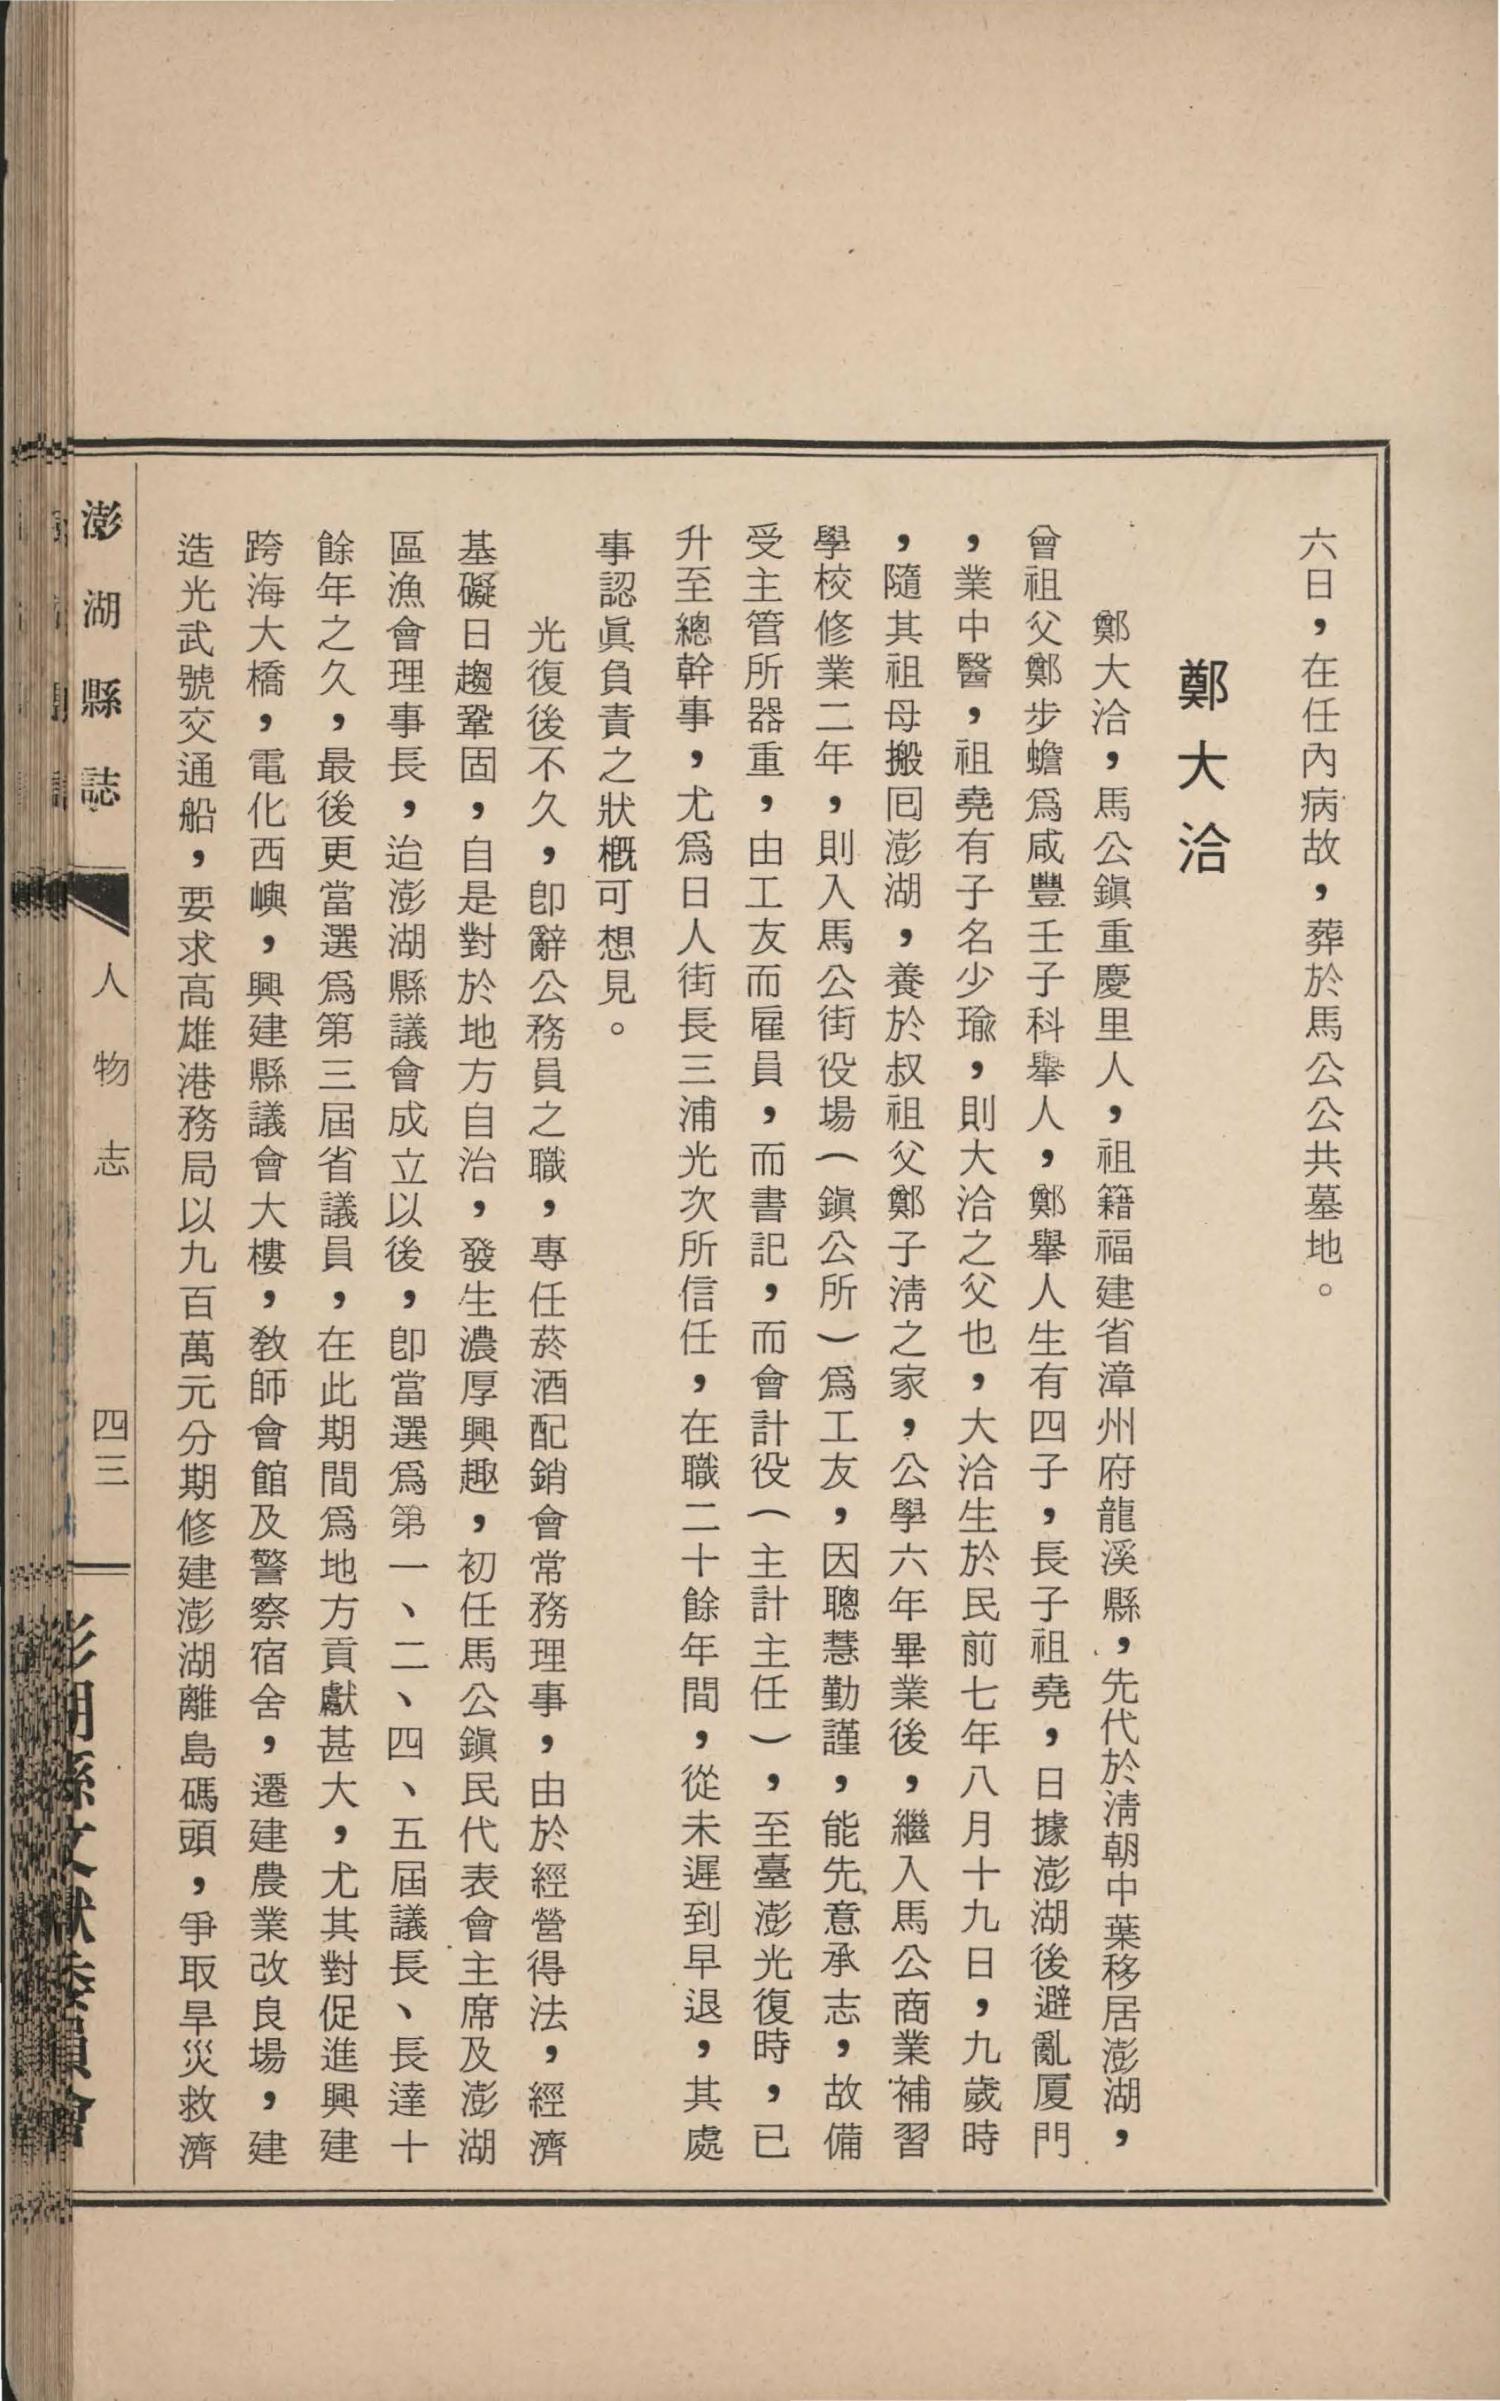 六日，在任內病故，葬於馬公公共墓地。
鄭大洽
鄭大洽，馬公鎭重慶里人，祖籍福建省漳州府龍溪縣，先代於淸朝中葉移居澎湖，
曾祖父鄭步蟾爲咸豐壬子科舉人，鄭舉人生有四子，長子祖堯，日據澎湖後避亂厦門
，業中醫，祖堯有子名少瑜，則大洽之父也，大洽生於民前七年八月十九日，九歲時
，隨其祖母搬囘澎湖，養於叔祖父鄭子淸之家，公學六年畢業後，繼入馬公商業補習
學校修業二年，則入馬公街役場（鎭公所）爲工友，因聰慧勤謹，能先意承志，故備
受主管所器重，由工友而雇員，而書記，而會計役（主計主任），至臺澎光復時，已
升至總幹事，尤爲日人街長三浦光次所信任，在職二十餘年間，從未遲到早退，其處
事認眞負責之狀槪可想見。
光復後不久，卽辭公務員之職，專任菸酒配銷會常務理事，由於經營得法，經濟
基礙日趨鞏固，自是對於地方自治，發生濃厚興趣，初任馬公鎭民代表會主席及澎湖
區漁會理事長，迨澎湖縣議會成立以後，卽當選爲第一、二、四、五屆議長、長達十
餘年之久，最後更當選爲第三屆省議員，在此期間爲地方貢獻甚大，尤其對促進興建
跨海大橋，電化西嶼，興建縣議會大樓，敎師會館及警察宿舍，遷建農業改良場，建
造光武號交通船，要求高雄港務局以九百萬元分期修建澎湖離島碼頭，爭取旱災救濟
澎湖縣誌
人物志
四三
澎湖縣文獻委員會